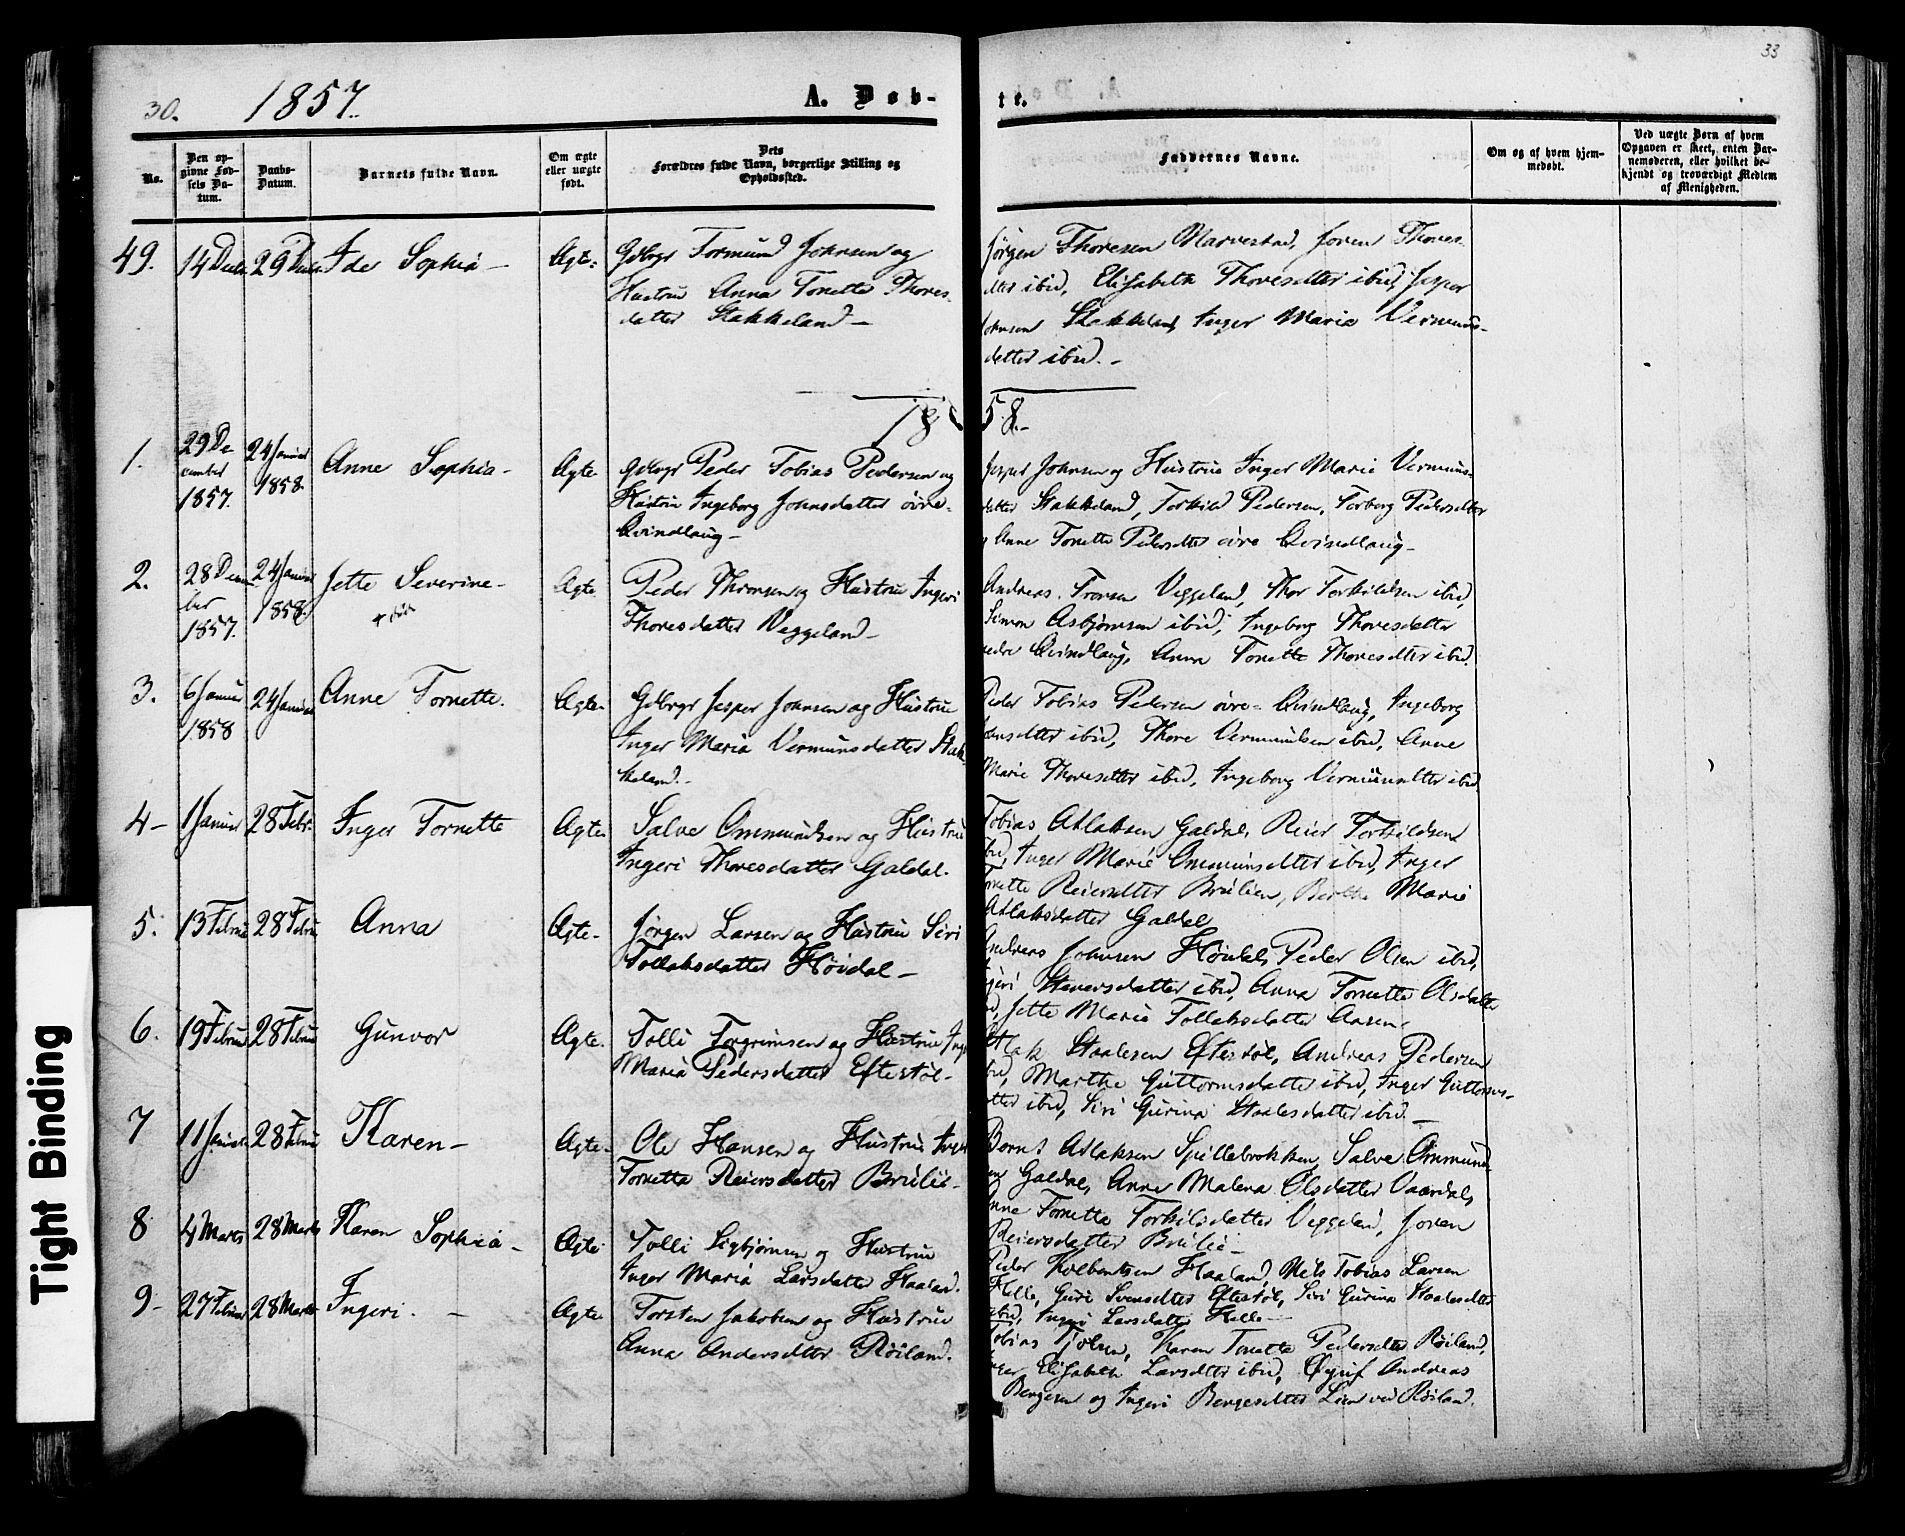 33
30.
1857.
A. Døb-
te.
No.
Den op-
givne Fød-
sels Da-
tum.
Daabs-
Datum.
Barnets fulde Navn.
Om ægte
eller uægte
født.
Dets
Forældres fulde Navn, borgerlige Stilling og
Opholdssted.
Faddernes Navne.
Om og af hvem hjem-
medøbt.
Ved uægte Børn af hvem
Opgaven er skeet, enten Bar-
nemoderen, eller hvilket be-
kjendt og troværdigt Medlem
af Menigheden.
49. 14 Decbr 29 Decbr Ide Sophia - Ægte.
Gdbrgr Tormund Johnsen og
Hustrue Anna Tonette Thores-
datter Stakkeland -
Jørgen Thoresen Marvestad, Joren Thores-
dtter ibid, Elisabeth Thoresdtter ibid, Jesper
Johnsen Stakkeland, Inger Maria Vermuns-
datter ibid. -
1858.-
1. 29 De-
cember
1857. 24 Januar
1858. Anne Sophia - Ægte
Gdbrgr Peder Tobias Pedersen og
Hustrue Ingeborg Johnsdatter øvre-
Qvindlaug -
Jesper Johnsen og Hustrue Inger Marie Vermuns-
datter Stakkeland, Torkild Pedersen, Torborg Pedersdtter
Anne Tonette Pedersdtter øvre Qvindlaug -
2. 28 Decem-
ber
1857. 24 Januar
1858. Jette Severine - Ægte
Peder Thronsen og Hustrue Ingeri
Thoresdatter Veggeland -
Andreas Tronsen Veggeland, Thor Torkildsen ibid,
Simon Asbjørnsen ibid, Ingeborg Thoresdatter
nedre Qvindlaug, Anna Tonette Thoresdtter ibid.
3. 6 Januar
1858 24 Januar Anne Tornette. Ægte.
Gdbrgr Jesper Johnsen og Hustrue
Inger Maria Vermunsdatter Stak-
keland. -
Peder Tobias Pedersen øvre- Qvindlaug, Ingeborg
Johnsdtter ibid, Thore Vermundsen ibid, Anne
Marie Thoresdtter ibid, Ingeborg Vermunsdtter ibid.
4- 1 Januar 28 Febr. Inger Tornette Ægte.
Salve Ommundsen og Hustrue
Ingeri Thoresdatter Galdal.
Tobias Atlaksen Galdal, Reier Torkildsen
ibid, Inger Marie Ommunsdtter ibid, Inger
Tonette Reiersdtter Brulien, Berthe Marie
Atlaksdatter Galdal
5. 13 Februar 28 Februar Anna Ægte-
Jørgen Larsen og Hustrue Siri
Tollaksdatter Høidal -
Andreas Johnsen Høidal, Peder Olsen ibid,
Staversdatter ibid, Anna Tornette Olsdatter
ibid, Jette Maria Tollaksdatter Aasen.
6. 19 Februar 28 Februar Gunvor Ægte.
Tolli Torgrimsen og Hustrue Inger
Maria Pedersdatter Eftestøl -
Atlak Staalesen Eftestøl, Andreas Pedersen
ibid, Marthe Guttormsdatter ibid, Inger Guttorms-
datter ibid, Siri Gurina Staalesdatter ibid. -
7 11 Januar 28 Februar Karen - Ægte-
Ole Hansen og Hustrue Inger
Tornetta Reiersdatter Brulie -
Bernt Atlaksen Spillebrokken, Salve Ommund-
sen Galdal, Anne Malena Olsdatter Vaardal,
Anne Tornetta Torkilsdatter Veggeland, Joren
Reiersdatter Brulie -
8 4 Marts 28 Marts Karen Sophia - Ægte.
Tolli Sigbjørnsen og Hustrue
Inger Maria Larsdatter Haaland.
Peder Kolbentsen Haaland, Nils Tobias Larsen
Helle, Guri Svensdtter Eftestøl, Siri Gurina Staalesdtter
ibid, Ingeri Larsdatter Helle -
9- 27 Februar 28 Marts Ingeri. - Ægte.
Torsten Jakobsen og Hustrue
Anna Andersdtter Røiland.
Tobias Karen Tonette Pedersdtter Røiland,
Inger Elisabeth Larsdtter ibid, Andreas
Bergesen og Ingeri Bergesdtter Lien ved Røiland.
Tight Binding